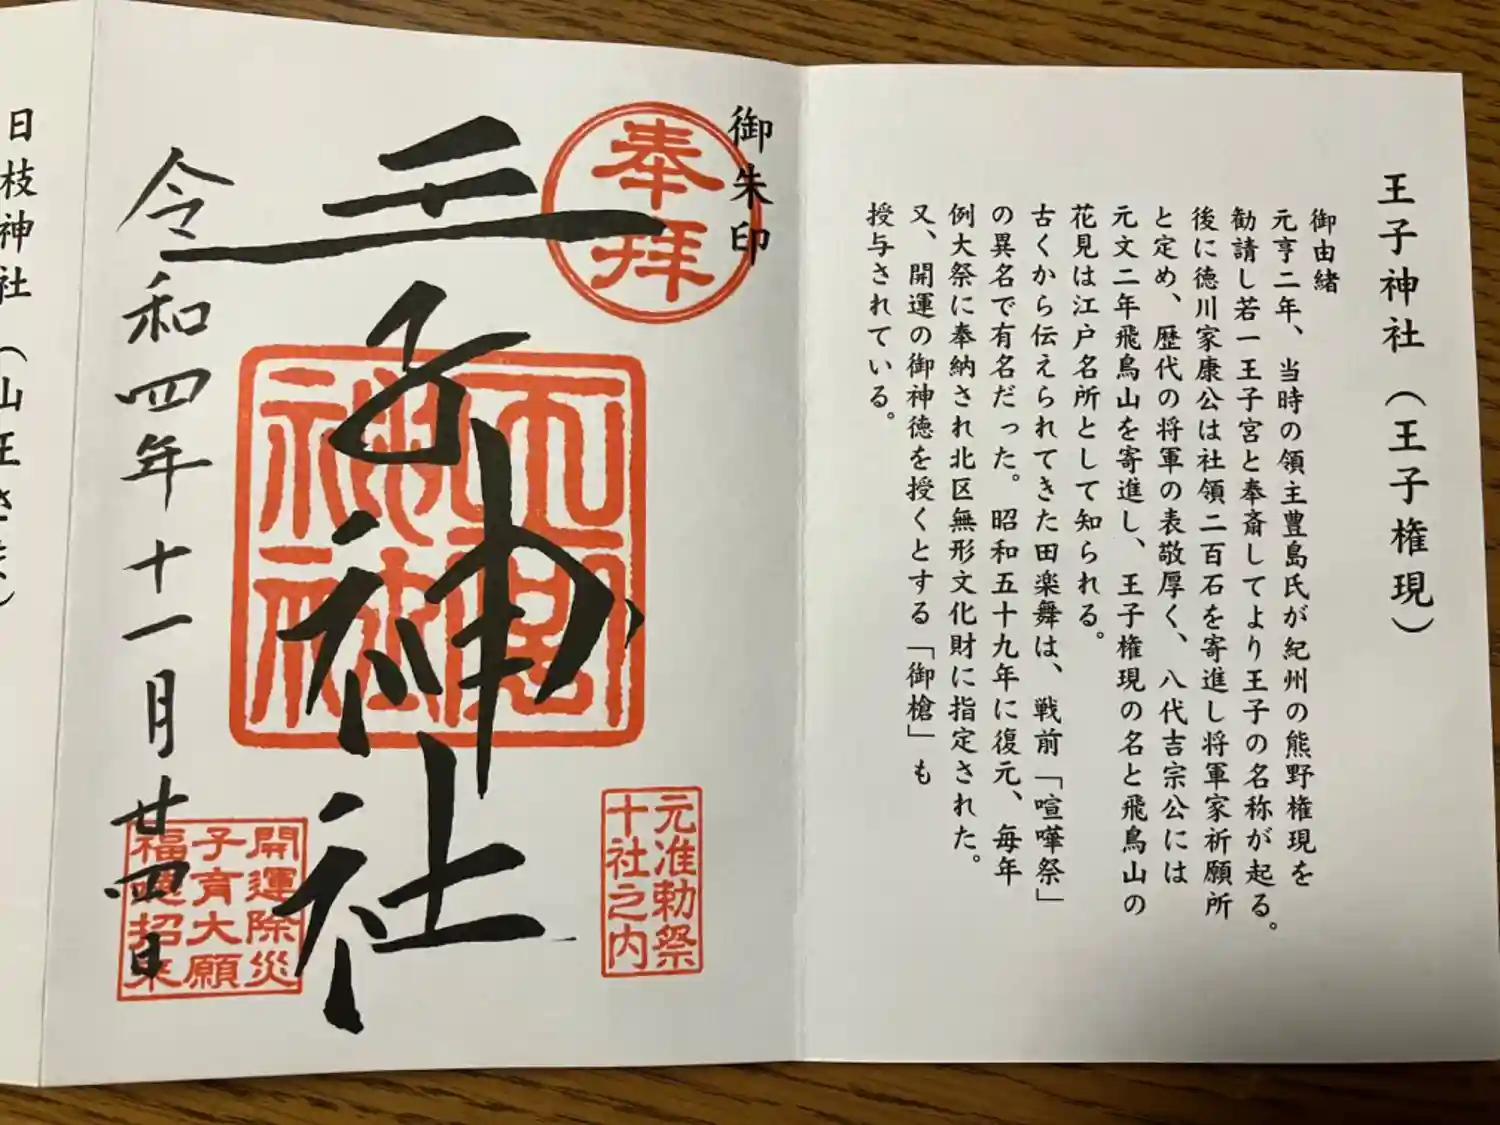 王子神社(王子権現)
御由緒
元亨二年、当時の領主豊島氏が紀州の熊野権現を
勧請し若一王子宮と奉斎してより王子の名称が起る。
後に徳川家康公は社領二百石を寄進し将軍家祈願所
と定め、歴代の将軍の表敬厚く、八代吉宗公には
元文二年飛鳥山を寄進し、王子権現の名と飛鳥山の
花見は江戸名所として知られる。
古くから伝えられてきた田楽舞は、戦前「喧嘩祭」
の異名で有名だった。昭和五十九年に復元、毎年
例大祭に奉納され北区無形文化財に指定された。
又、開運の御神徳を授くとする「御槍」も
授与されている。
御朱印
奉拝
元准勅祭
十社之内
王子神社
王子神社
開運除災
子育大願
福徳招来
令和四年十一月廿四日
日枝神社(山王さま)